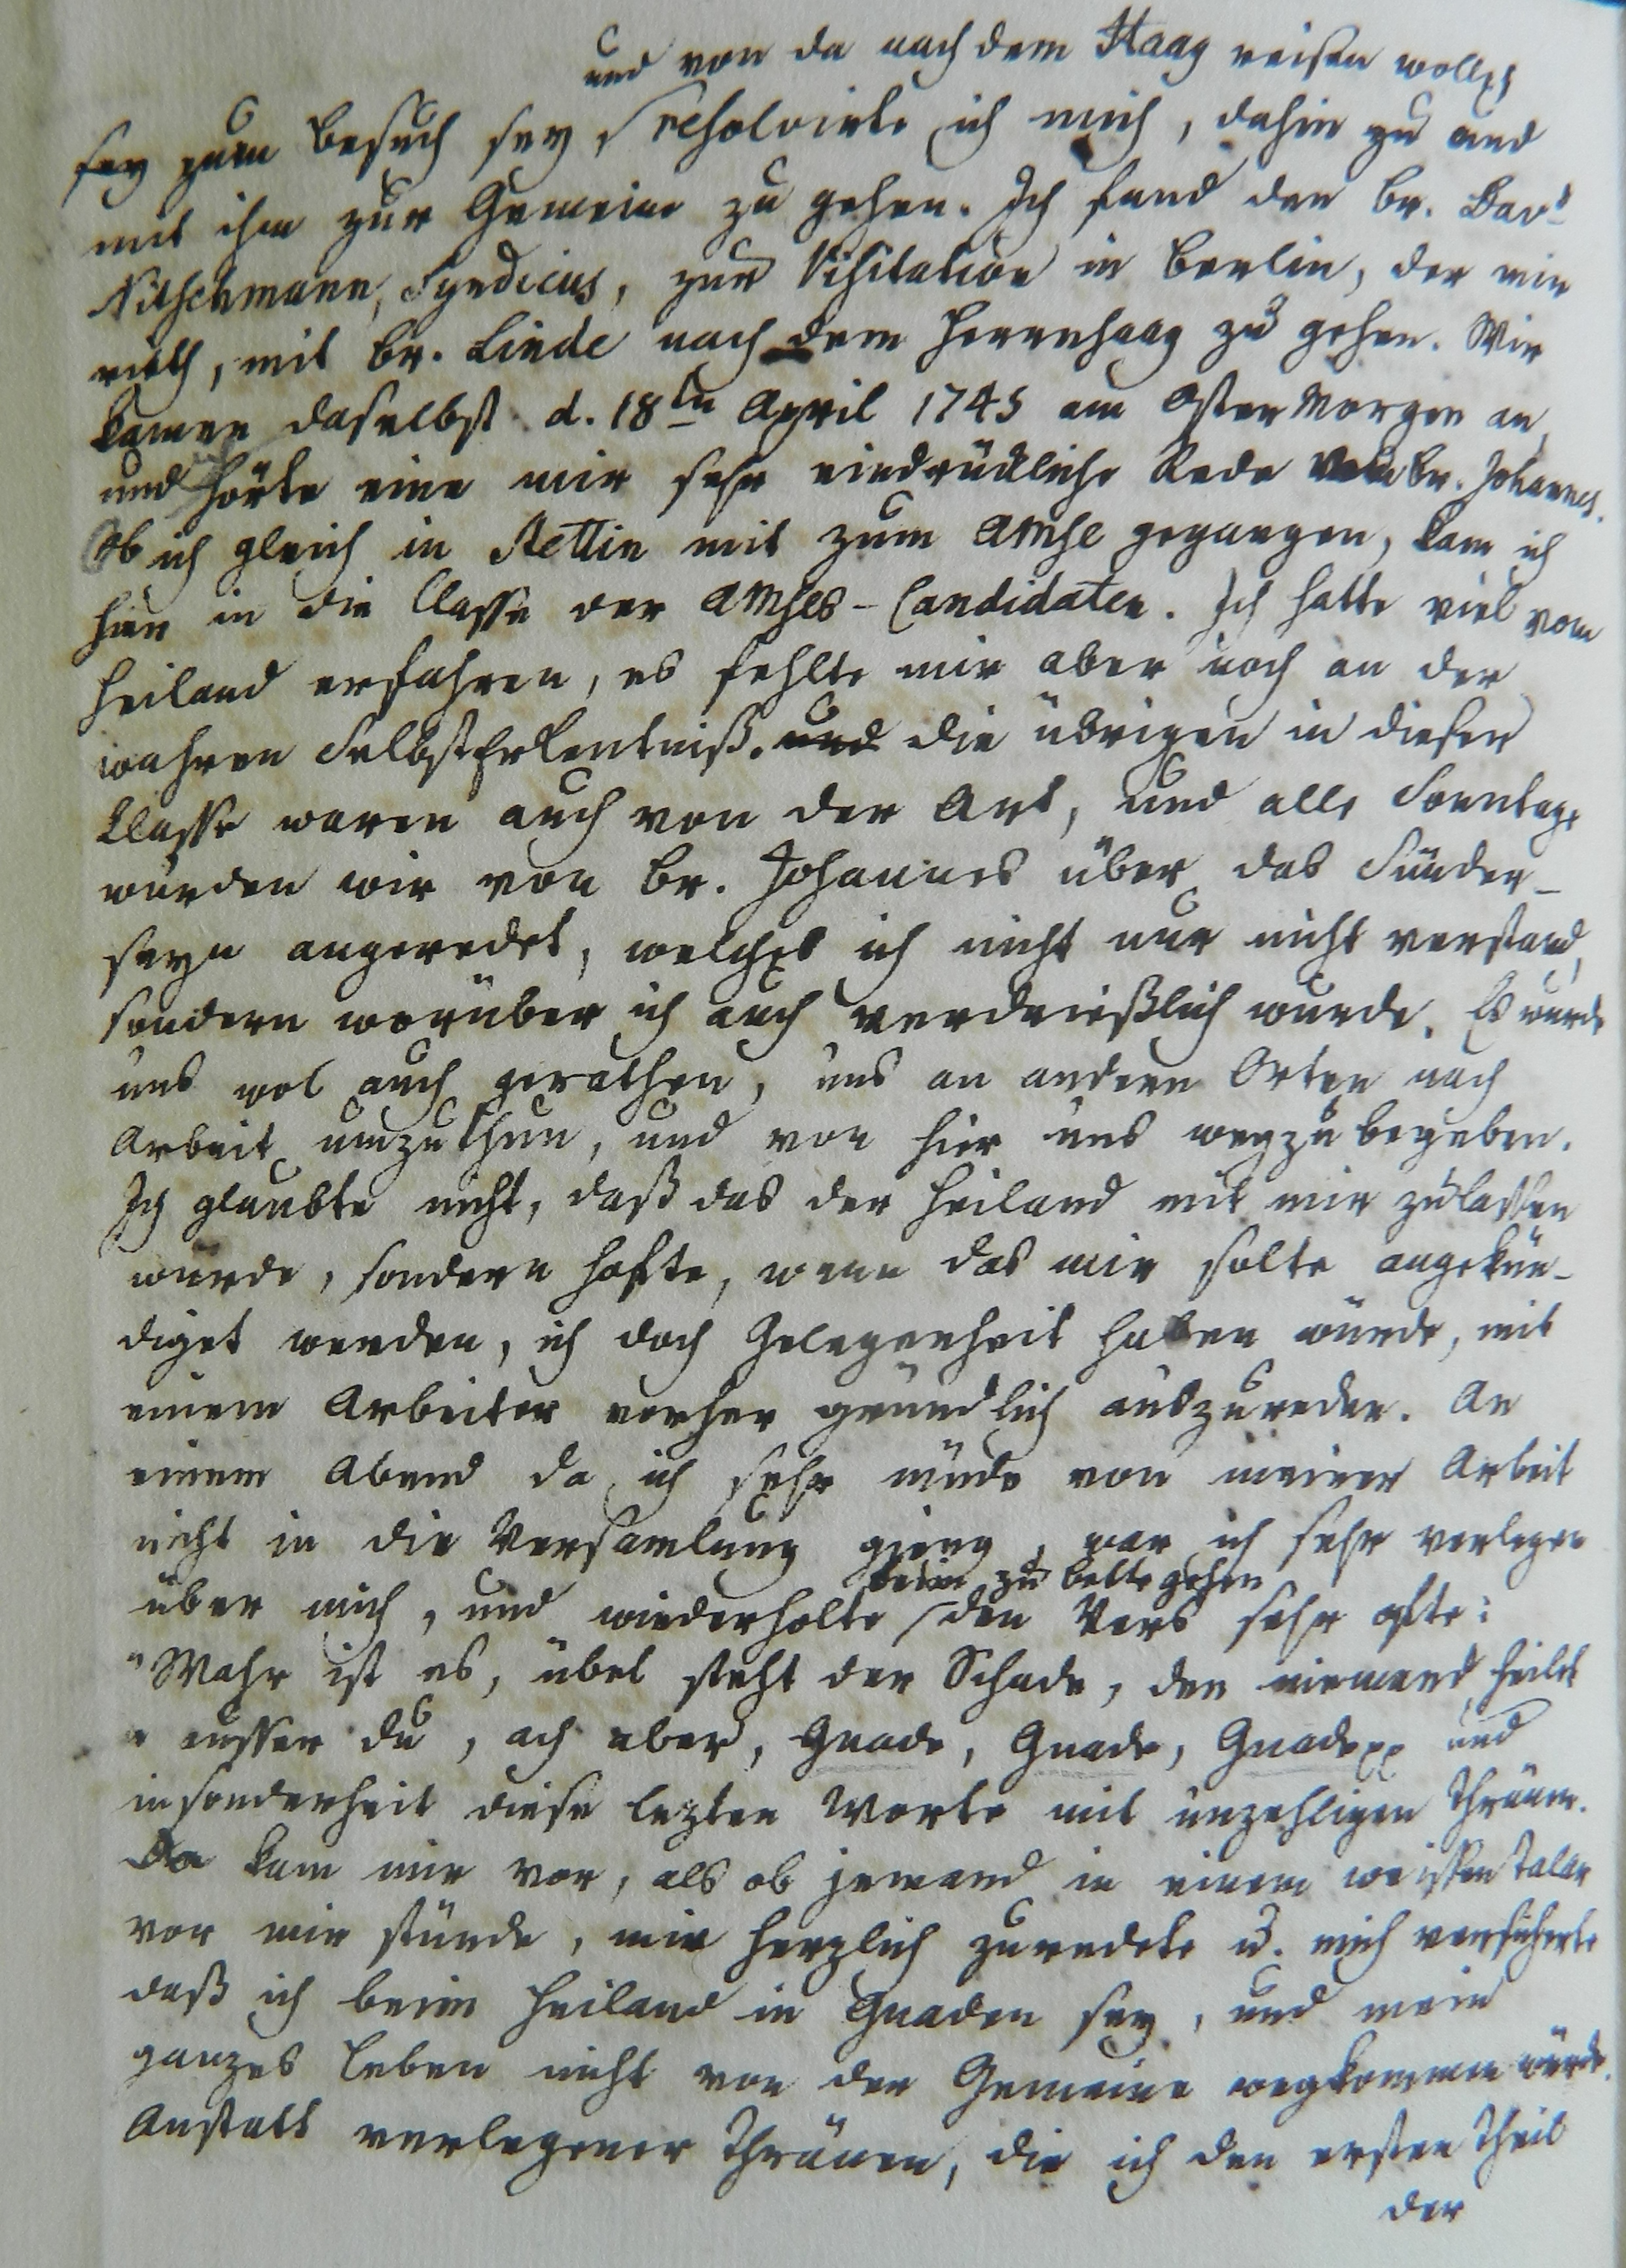 und von da nach dem Haag reisen wolle,
sey zum Besuch sey, resolvirte ich mich, dahin zu und
mit ihm zur Gemeine zu gehen. Ich fand den Br. Dav.
Nitschmann, Syndicus, zur Visitation in Berlin, der mir
rieth, mit Br. Linde nach dem Herrnhaag zu gehen. Wir
kamen daselbst d. 18ten April 1745 am Oster Morgen an,
und hörte eine mir sehr eindrückliche Rede vom Br. Johannes.
Ob ich gleich in Stettin mit zum Abmhle gegangen, kam ich
hier in die Classe der Abmhles-Candidaten. Ich hatte viel vom
Heiland erfahren, es fehlte mir aber noch an der
wahren SelbstErkentniß. und die übrigen in dieser
Classe waren auch von der Art, und alle Sonntage
wurden wir von Br. Johannes über das Sünder-
seyn angeredet, welches ich nicht nur nicht verstand,
sondern worüber ich auch verdrießlich wurde. Es wurde
uns wol auch gerathen, uns an andern Orten nach
Arbeit umzuthun, und von hier uns wegzubegeben.
Ich glaubte nicht, daß das der Heiland mit mir zulassen
würde, sondern hofte, wenn das mir solte angekün-
diget werden, ich doch Gelegenheit haben würde, mit
einem Arbeiter vorher gründlich auszureden. An
einem Abend da ich sehr müde von meiner Arbeit
nicht in die Versamlung gieng, war ich sehr verlegen
beim zu Bette gehen
über mich, und wiederholte den Vers sehr ofte:
"Wahr ist es, übel steht der Schade, den niemand heilet
" ausser du, ach aber, Gnade, Gnade, Gnade xx und
insonderheit diese lezten Worte mit unzehligen Thränen.
Da kam mir vor, als ob jemand in einem weissen Talar
vor mir stünde, mir herzlich zuredete u. mich versicherte
daß ich beim Heiland in Gnaden sey, und mein
ganzes Leben nicht von der Gemeine wegkommen würde.
Anstatt verlegener Thränen, die ich den ersten Theil
der